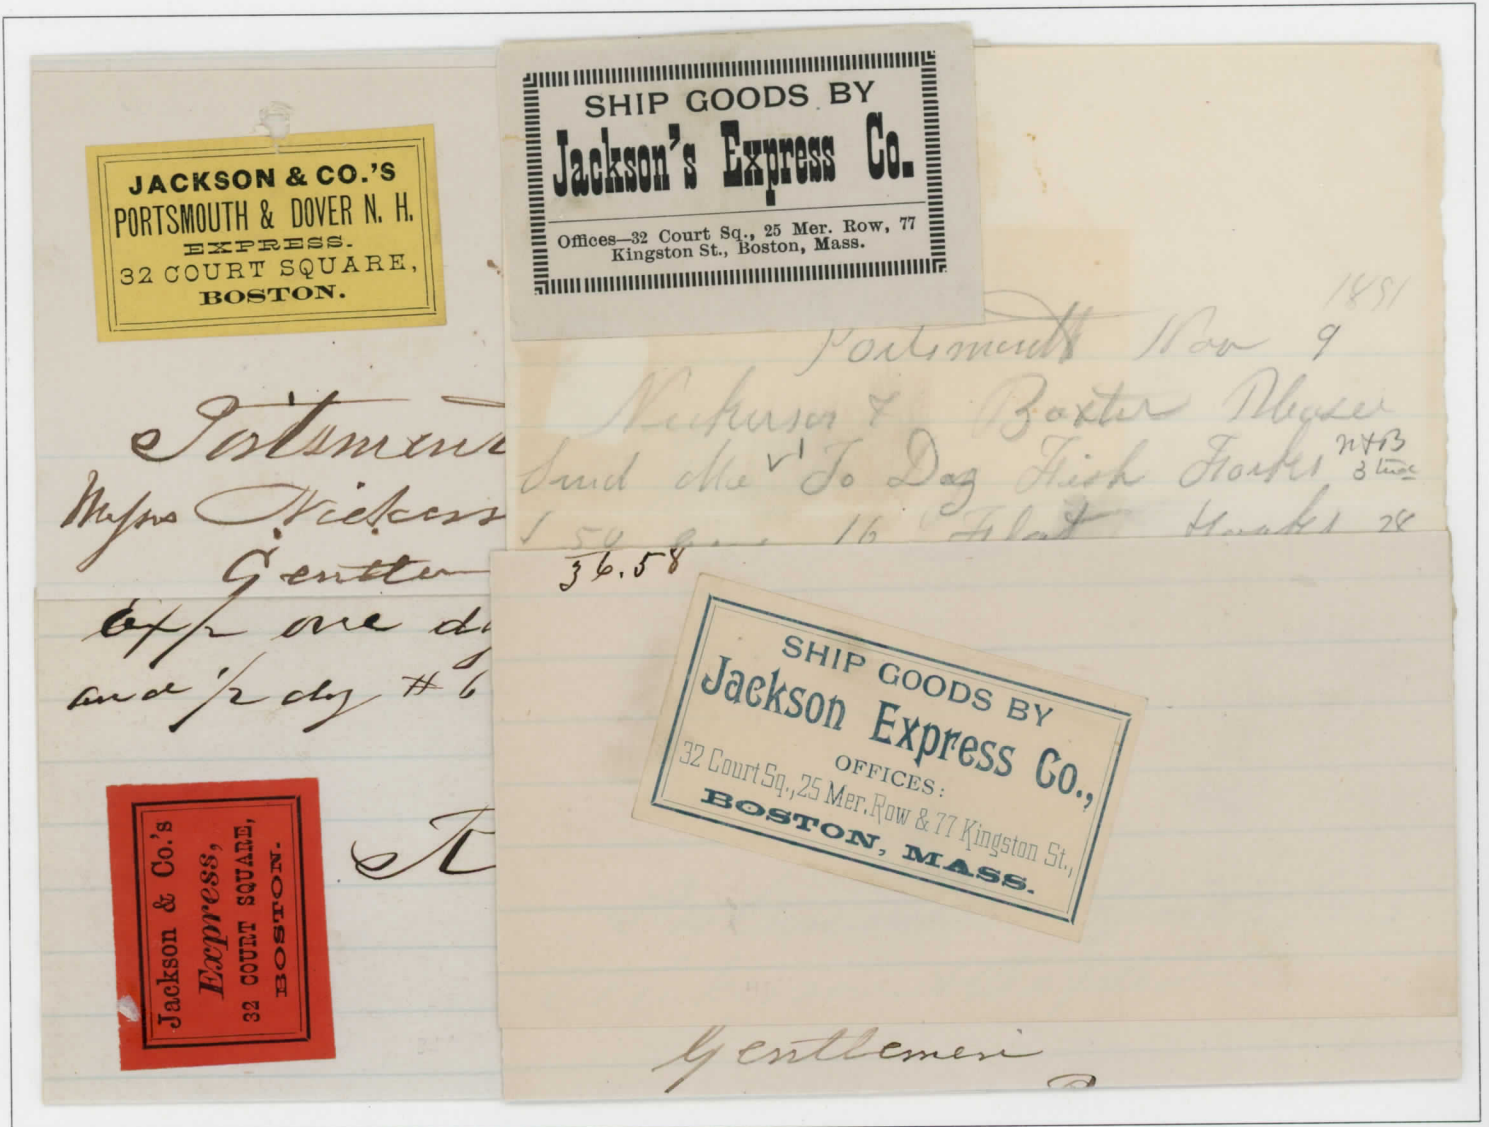 JACKSON & CO.'S
PORTSMOUTH & DOVER N. H.
EXPRESS.
32 COURT SQUARE,
BOSTON.
SHIP GOODS BY
Jackson's Express Co.
Offices—32 Court Sq., 25 Mer. Row, 77
Kingston St., Boston, Mass.
1891
Portsmouth Nov 9
Nickerson & Baxter Please
Send Me To Doz Fish Forks N&B
16 Flat Hooks 28
Portsmout
Messrs Nickers
Gentlem
exp one dz
and 1/2 dz # 6
36.58
SHIP GOODS BY
Jackson Express Co.,
OFFICES:
32 Court Sq., 25 Mer. Row & 77 Kingston St.,
BOSTON, MASS.
Jackson & Co.'s
Express,
32 COURT SQUARE,
BOSTON.
Gentlemen